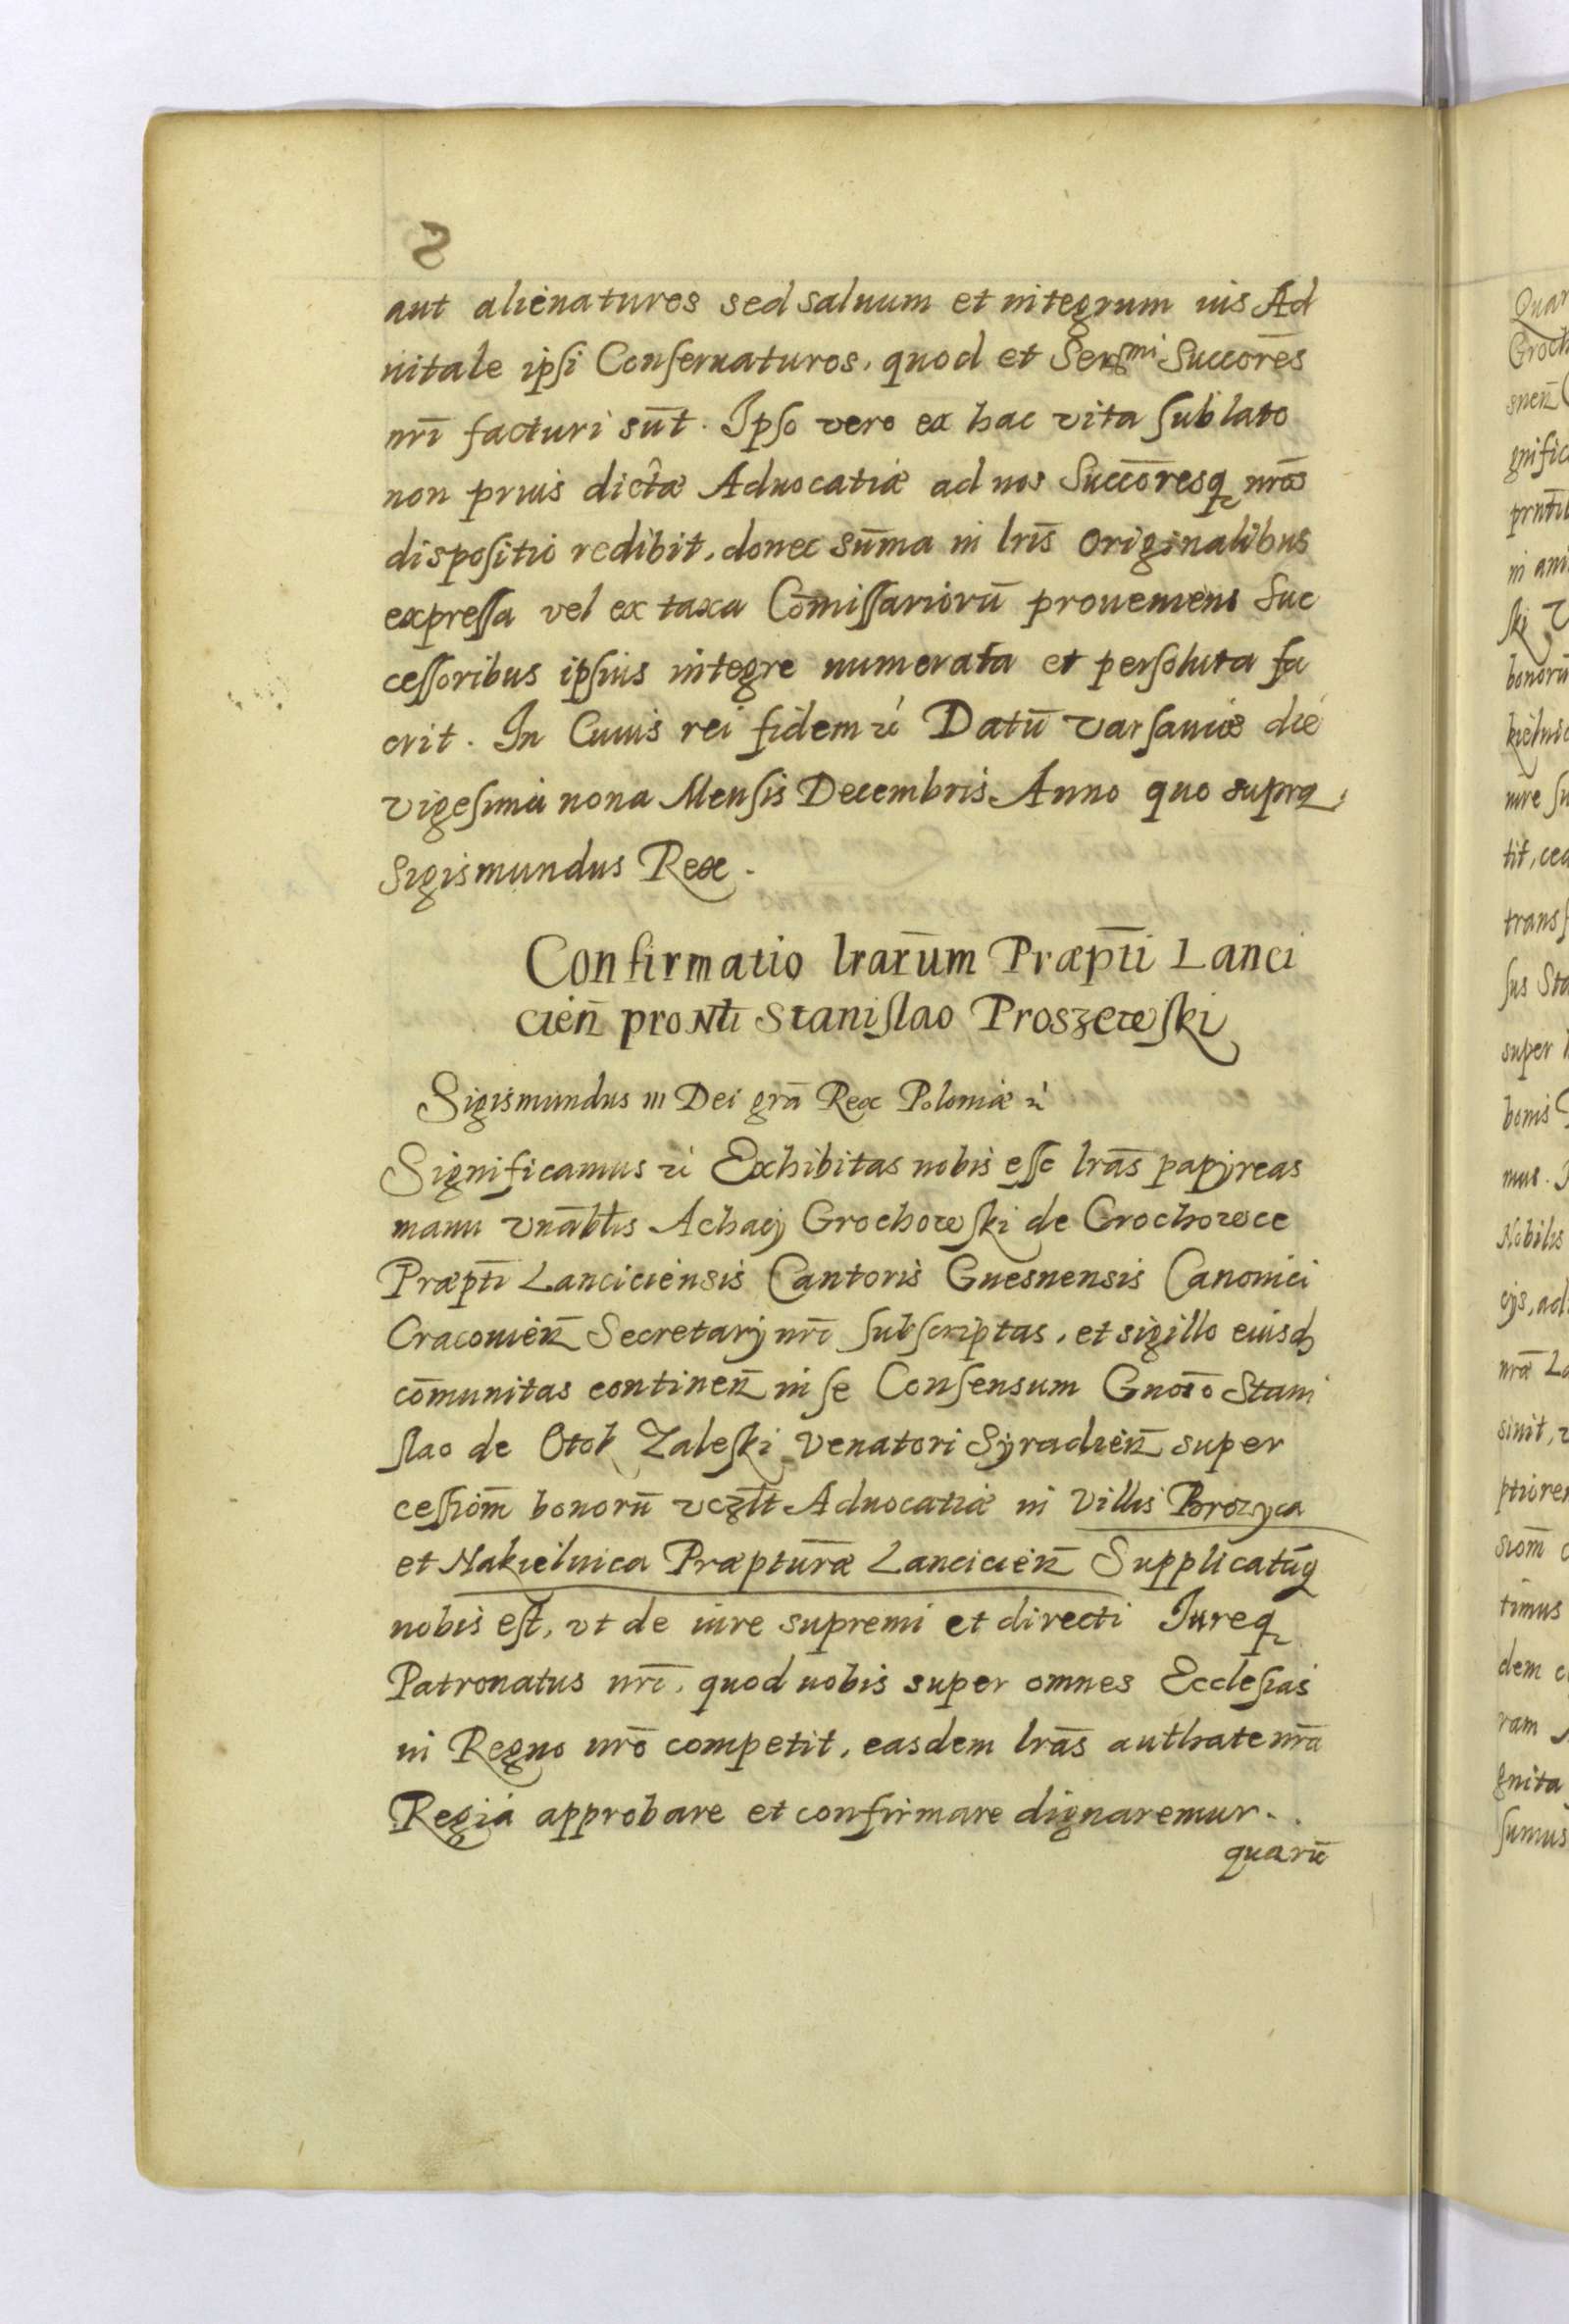 8
aut alienaturos sed saluum et integrum ius Ad
uitale ipsi Conseruaturos, quod et Sermi Succores
nri facturi sūt. Ipso vero ex hac vita sublato
non prius dictæ Aduocatiæ ad nos Succōresq nrōs
dispositio redibit, donec sūma in lris originalibus
expressa vel ex taxa Cōmissariorū proueniens Suc
cessoribus ipsius integre numerata et persoluta fu
erit. In Cuius rei fidem Datū Varsauiæ die
vigesima nona Mensis Decembris Anno quo supra
Sigismundus Rex.
Confirmatio lrarum Præpti Lanci
cien Stanislao Proszewski
Sigismundus III Dei grā Rex Poloniæ
Significamus Exhibitas nobis esse lrās papyreas
manu Achacij Grochowski de Grochowce
Præpti Lanciciensis Cantoris Gnesnensis Canonici
Cracouień Secretarij nri subscriptas, et sigillo eiusd
cōmunitas continen in se Consensum Gnoso Stani
slao de Otok Zaleski Venatori Syradień super
cessiom bonorū Aduocatiæ in Villis
et Nakielnica Præpturæ Lancicień Supplicatūq
nobis est, vt de iure supremi et directi Iureq
Patronatus nri, quod nobis super omnes Ecclesias
in Regno nrō competit, easdem lrās authate nrā
Regia approbare et confirmare dignaremur.
quarū